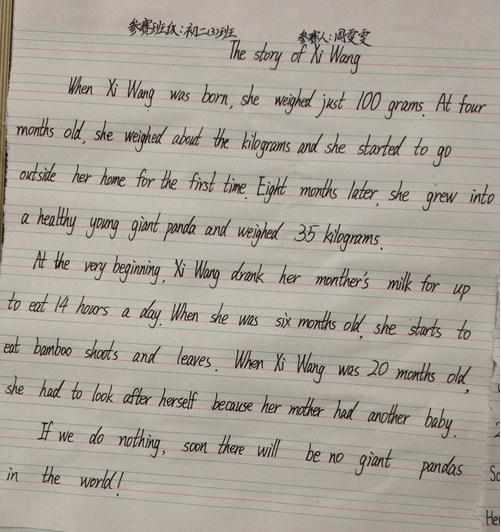 参赛班级:初二(3)班 参赛人:周雯雯
The story of Xi Wang
When Xi Wang was born, she weighed just 100 grams. At four
months old, she weighed about the kilograms and she started to go
outside her home for the first time. Eight months later, she grew into
a healthy young giant panda and weighed 35 kilograms.
At the very beginning, Xi Wang drank her monther's milk for up
to eat 14 hours a day. When she was six months old, she starts to
eat bamboo shoots and leaves. When Xi Wang was 20 months old,
she had to look after herself because her mother had another baby.
If we do nothing, soon there will be no giant pandas
in the world!